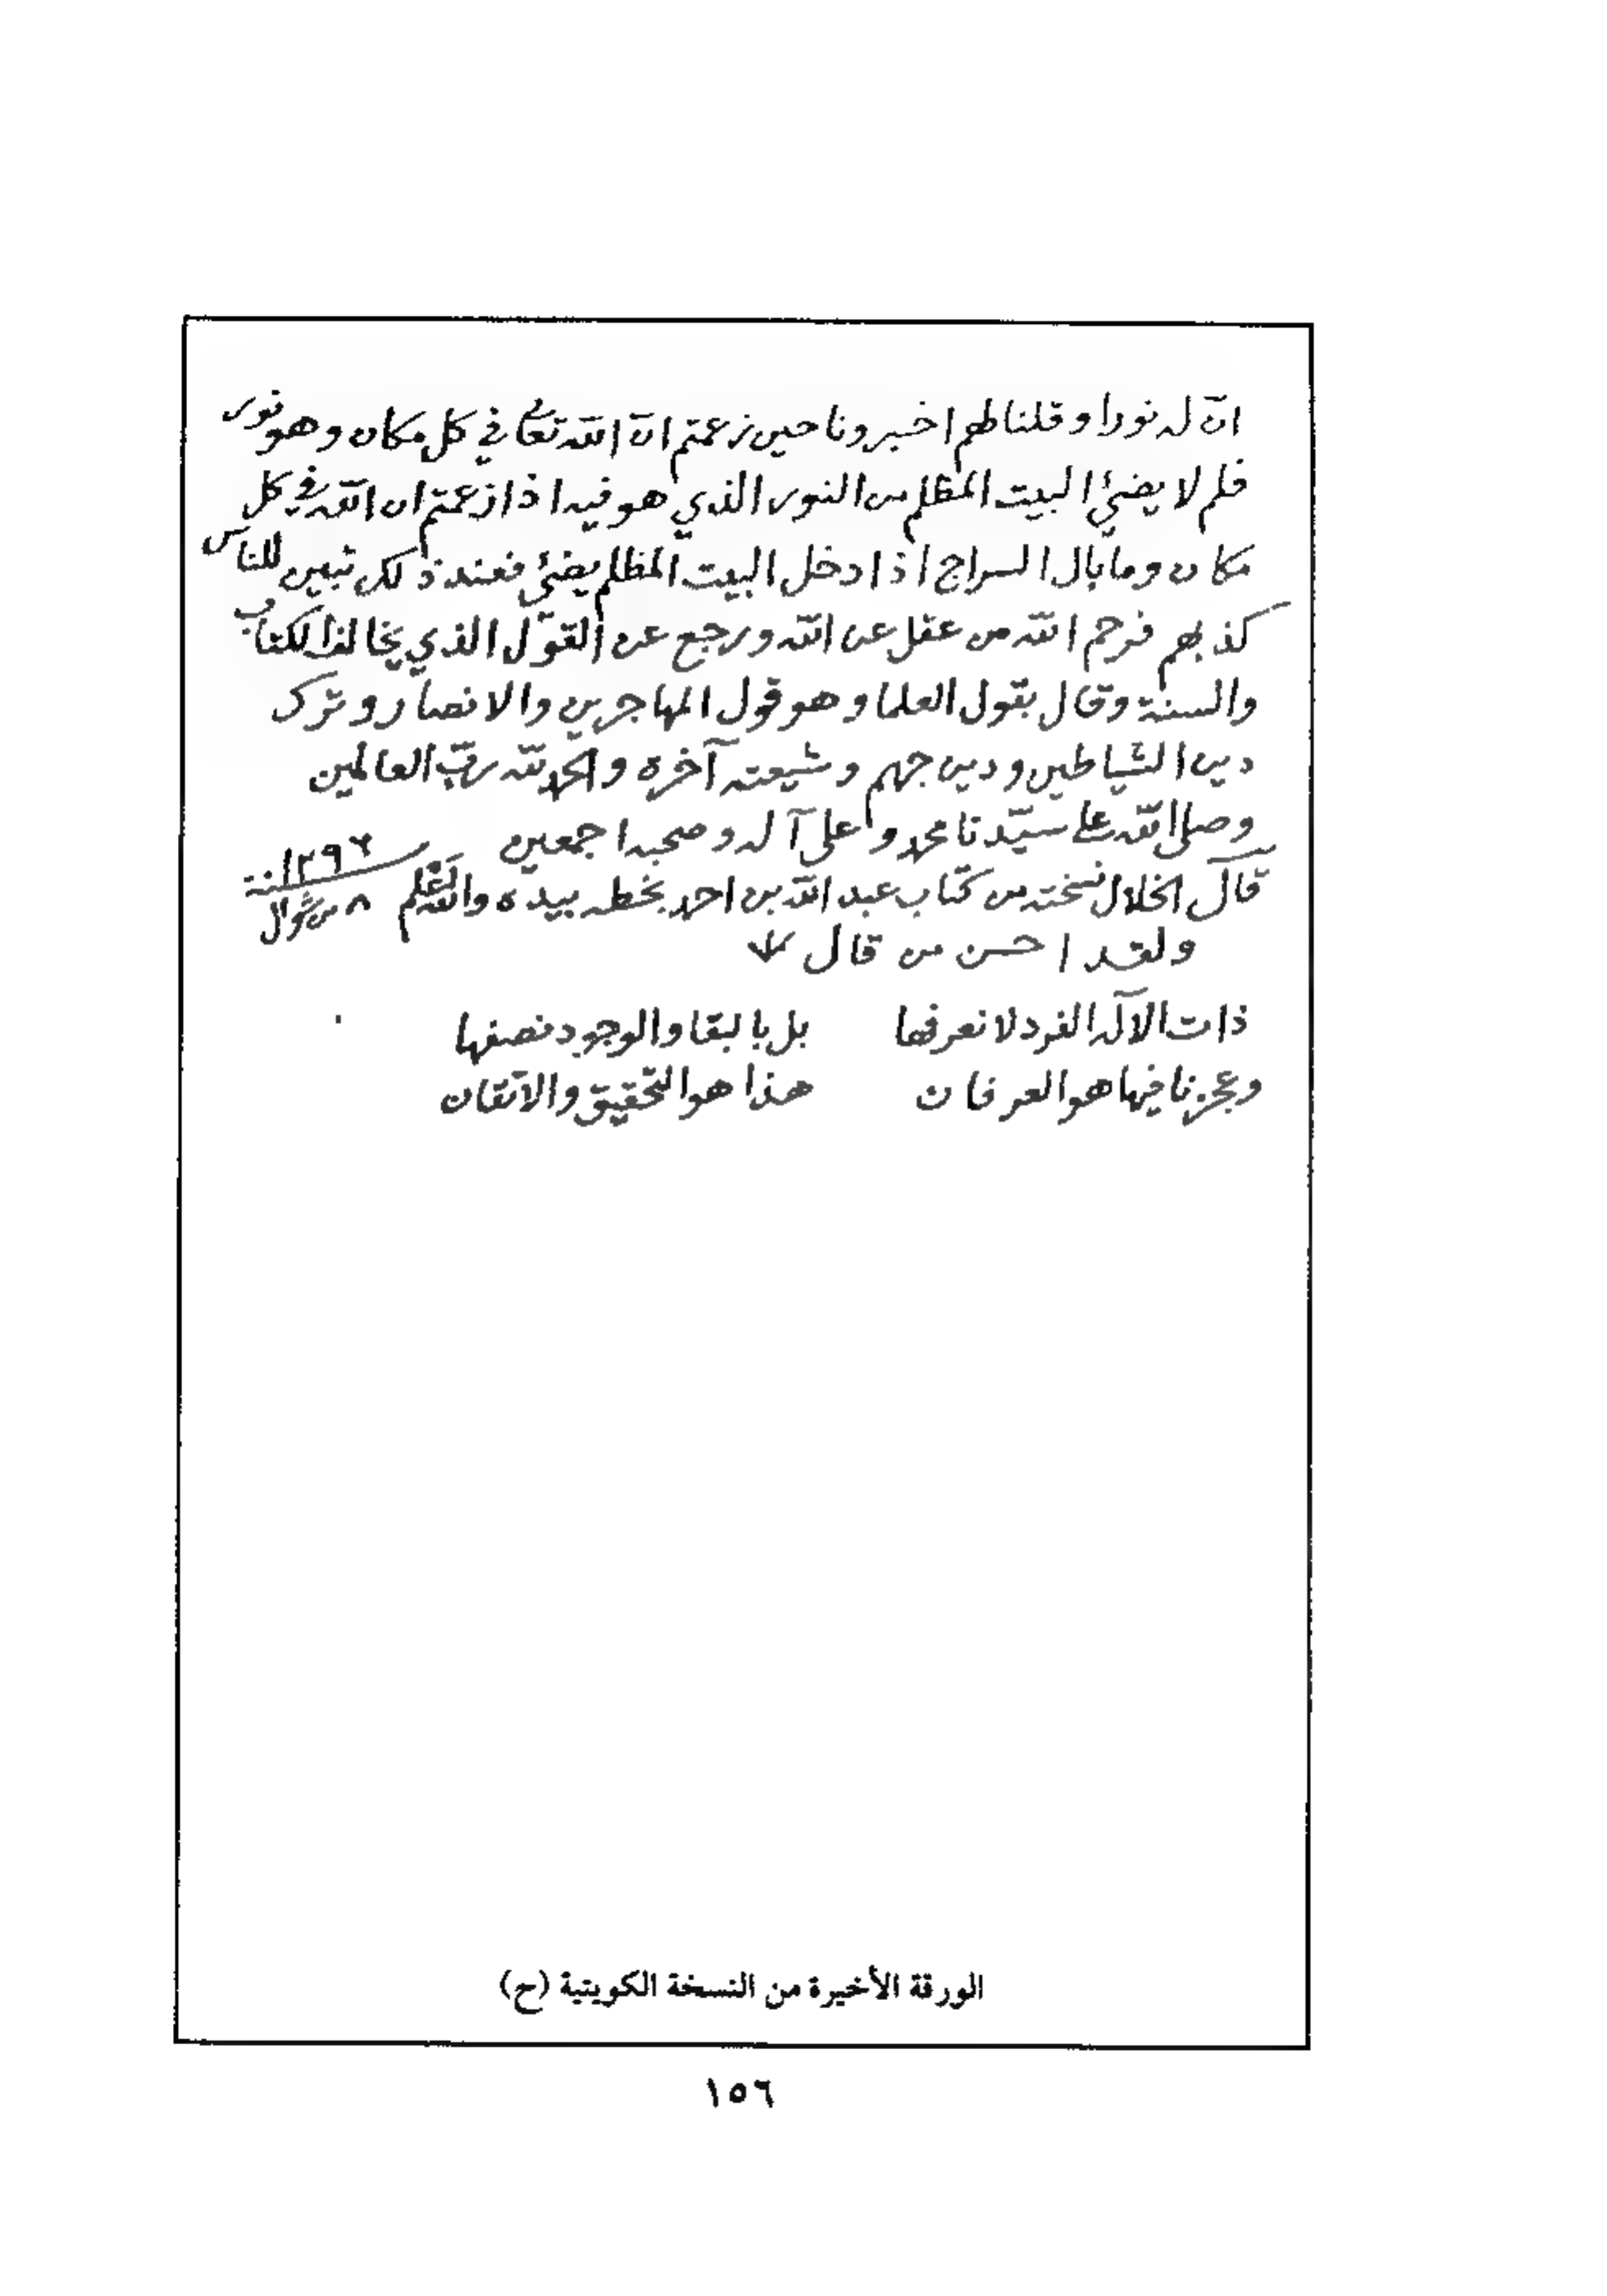 انّ له نورا وقلنا لهم اخبرونا حين زعمتم انّ الله تعالى في كل مكان وهو نور
فلم لا يضئ البيت المظلم من النور الذي هو فيه اذا زعمتم ان الله في كل
مكان وما بال السراج اذا دخل البيت المظلم يضئ فعند ذلك تبين للناس
كذبهم فرحم الله من عقل عن الله ورجع عن القول الذي يخالف الكتاب
والسنة وقال بقول العلما وهو قول المهاجرين والانصار وترك
دين الشياطين ودين جهم وشيعته آخره والحمد لله ربّ العالمين
وصلى الله على سيّدنا محمد وعلى آله وصحبه اجمعين
قال الخلال نسخته من كتاب عبد الله بن احمد بخطه بيده والله اعلم ٨ من شوال سنة ١٢٩٦
ولقد احسن من قال
ذات الاله الفرد لا نعرفها بل بالبقا والوجود نصفها
وعجزنا فيها هو العرفان هذا هو التحقيق والاتقان
الورقة الأخيرة من النسخة الكويتية (ح)
١٥٦